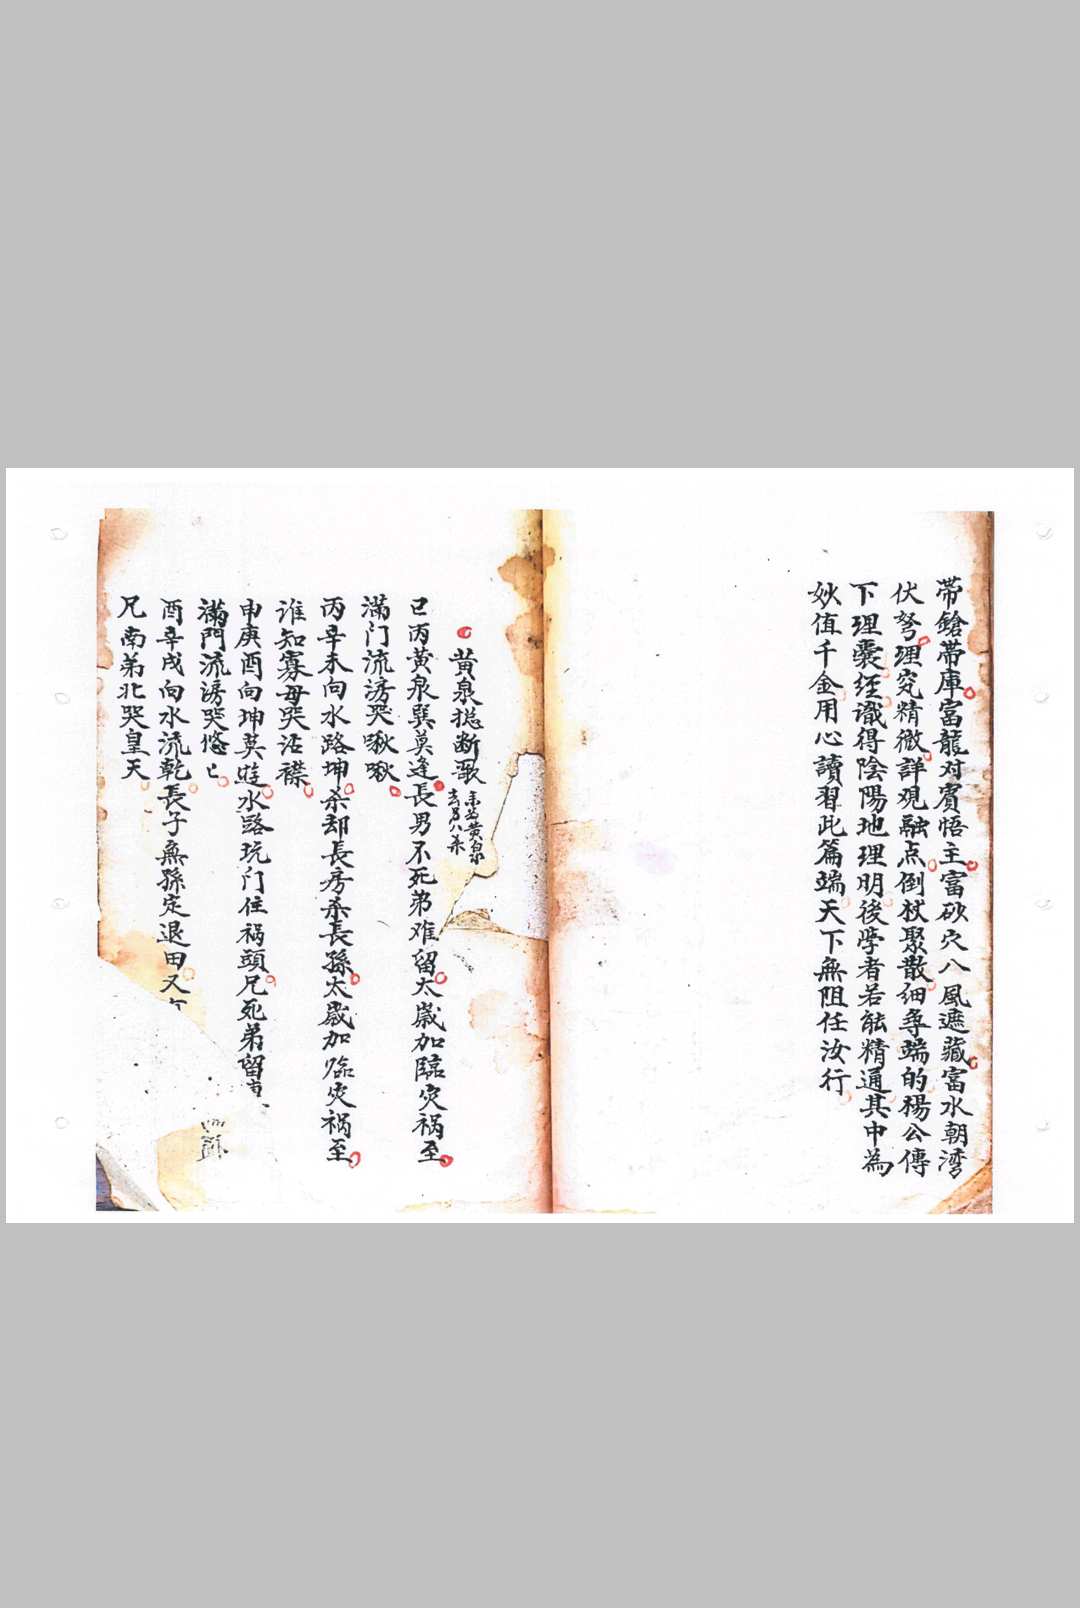 帶鎗帶庫富龍对賓悟主富砂穴八風遮藏富水朝湾
伏弩理究精微詳观融点倒杖聚散细争端的楊公傳
下理囊经識得陰陽地理明後學者若能精通其中為
妙值千金用心讀習此篇端天下無阻任汝行
黄泉摠断歌
黄泉
八杀
巳丙黄泉巽莫逢長男不死弟难留太歲加臨灾祸至
滿门流涝哭啾啾
丙辛未向水路坤杀却長房杀長孫太歲加臨灾祸至
谁知寡母哭沾襟
申庚酉向坤莫遊水路玩门住祸頭兄死弟留
滿門流涝哭悠
酉辛戌向水流乾長子無孫定退田又
兄南弟北哭皇天